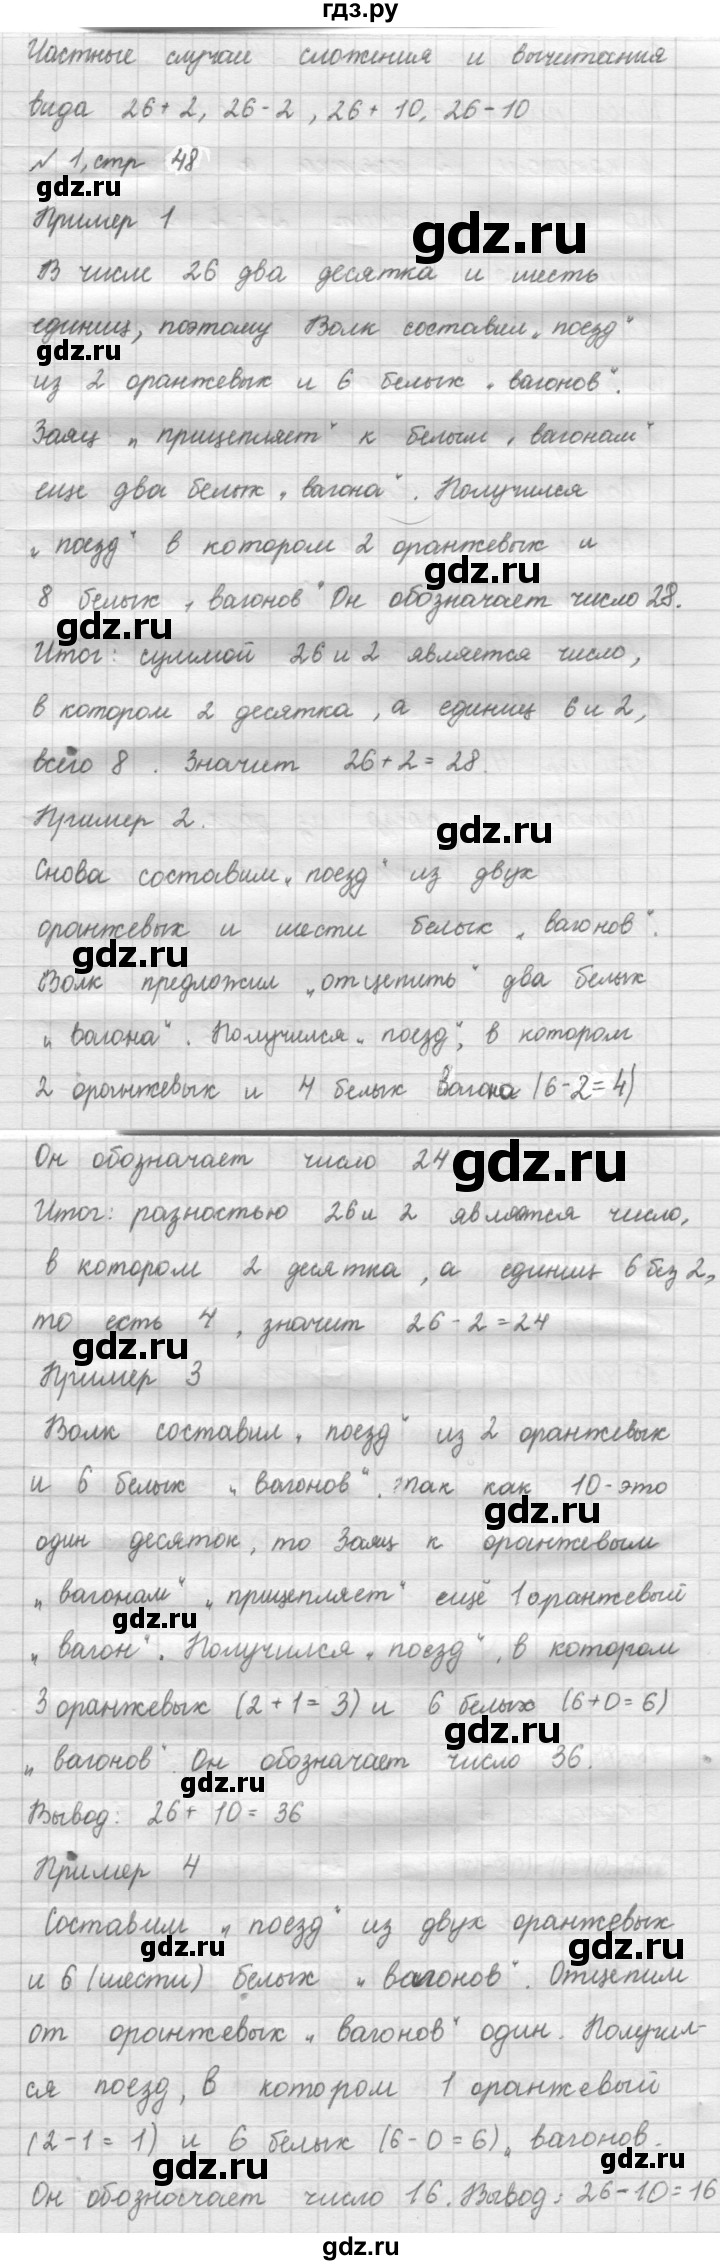 гдз.ру
Частные случаи сложения и вычитания
вида 26+2, 26-2, 26+10, 26-10
№ 1, стр 48
gdz.ru
Пример 1
gdz.ru
В числе 26 два десятка и шесть
единиц, поэтому Волк составил „поезд“
gdz.ru
из 2 оранжевых и 6 белых „вагонов“.
Заяц „прицепляет“ к белым „вагонам“
еще два белых „вагона“. Получился
„поезд“ в котором 2 оранжевых и
gdz.ru
8 белых „вагонов“ Он обозначает число 28.
gdz.ru
Итог: суммой 26 и 2 является число,
в котором 2 десятка, а единиц 6 и 2,
всего 8. Значит 26+2=28.
Пример 2.
gdz.ru
Снова составим „поезд“ из двух
оранжевых и шести белых „вагонов“.
gdz.ru
Волк предложил „отцепить“ два белых
„вагона“. Получился „поезд“, в котором
2 оранжевых и 4 белых вагона (6-2=4)
Он обозначает число 24
gdz.ru
Итог: разностью 26 и 2 является число,
в котором 2 десятка, а единиц 6 без 2,
то есть 4, значит 26-2=24
gdz.ru
Пример 3
Волк составил „поезд“ из 2 оранжевых
и 6 белых „вагонов“. Так как 10-это
gdz.ru
один десяток, то Заяц к оранжевым
„вагонам“ „прицепляет“ ещё 1 оранжевый
gdz.ru
„вагон“. Получился „поезд“, в котором
3 оранжевых (2+1=3) и 6 белых (6+0=6)
gdz.ru
„вагонов“. Он обозначает число 36.
gdz.ru
Вывод: 26+10=36
Пример 4
Составим „поезд“ из двух оранжевых
gdz.ru
gdz.ru
и 6 (шести) белых „вагонов“. Отцепим
от оранжевых „вагонов“ один. Получил-
ся поезд, в котором 1 оранжевый
(2-1=1) и 6 белых (6-0=6) „вагонов.
gdz.ru
gdz.ru
Он обозначает число 16. Вывод: 26-10=16
gdz.ru